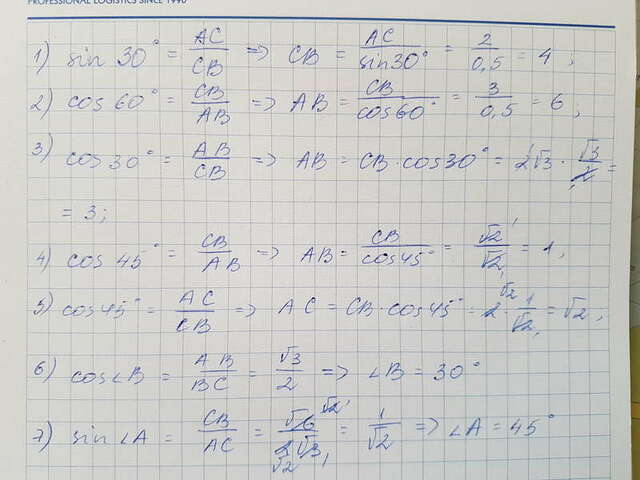 PROFESSIONAL LOGISTICS SINCE 1998
1) sin 30° = AC/CB => CB = AC/sin30° = 2/0,5 = 4;
2) cos 60° = CB/AB => AB = CB/cos60° = 3/0,5 = 6;
3) cos 30° = AB/CB => AB = CB · cos30° = 2√3 · √3/2 =
= 3;
4) cos 45° = CB/AB => AB = CB/cos45° = √2/√2 = 1;
5) cos 45° = AC/CB => AC = CB · cos45° = 2 · 1/√2 = √2;
6) cos∠B = AB/BC = √3/2 => ∠B = 30°
7) sin∠A = CB/AC = √6/2√3 = 1/√2 => ∠A = 45°